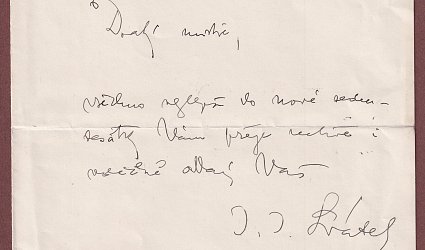 Drahý mistře,
všechno nejlepší do nové sedm-
desátky Vám přeje srdečně i
vděčně oddaný Váš
J. J.